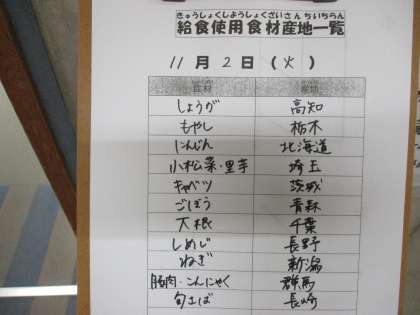 きゅうしょくしようしょくざいさんちいちらん
給食使用食材産地一覧
11月2日(火)
食材 産地
しょうが 高知
もやし 栃木
にんじん 北海道
小松菜・里芋 埼玉
キャベツ 茨城
ごぼう 青森
大根 千葉
しめじ 長野
ねぎ 新潟
豚肉・こんにゃく 群馬
旬さば 長崎